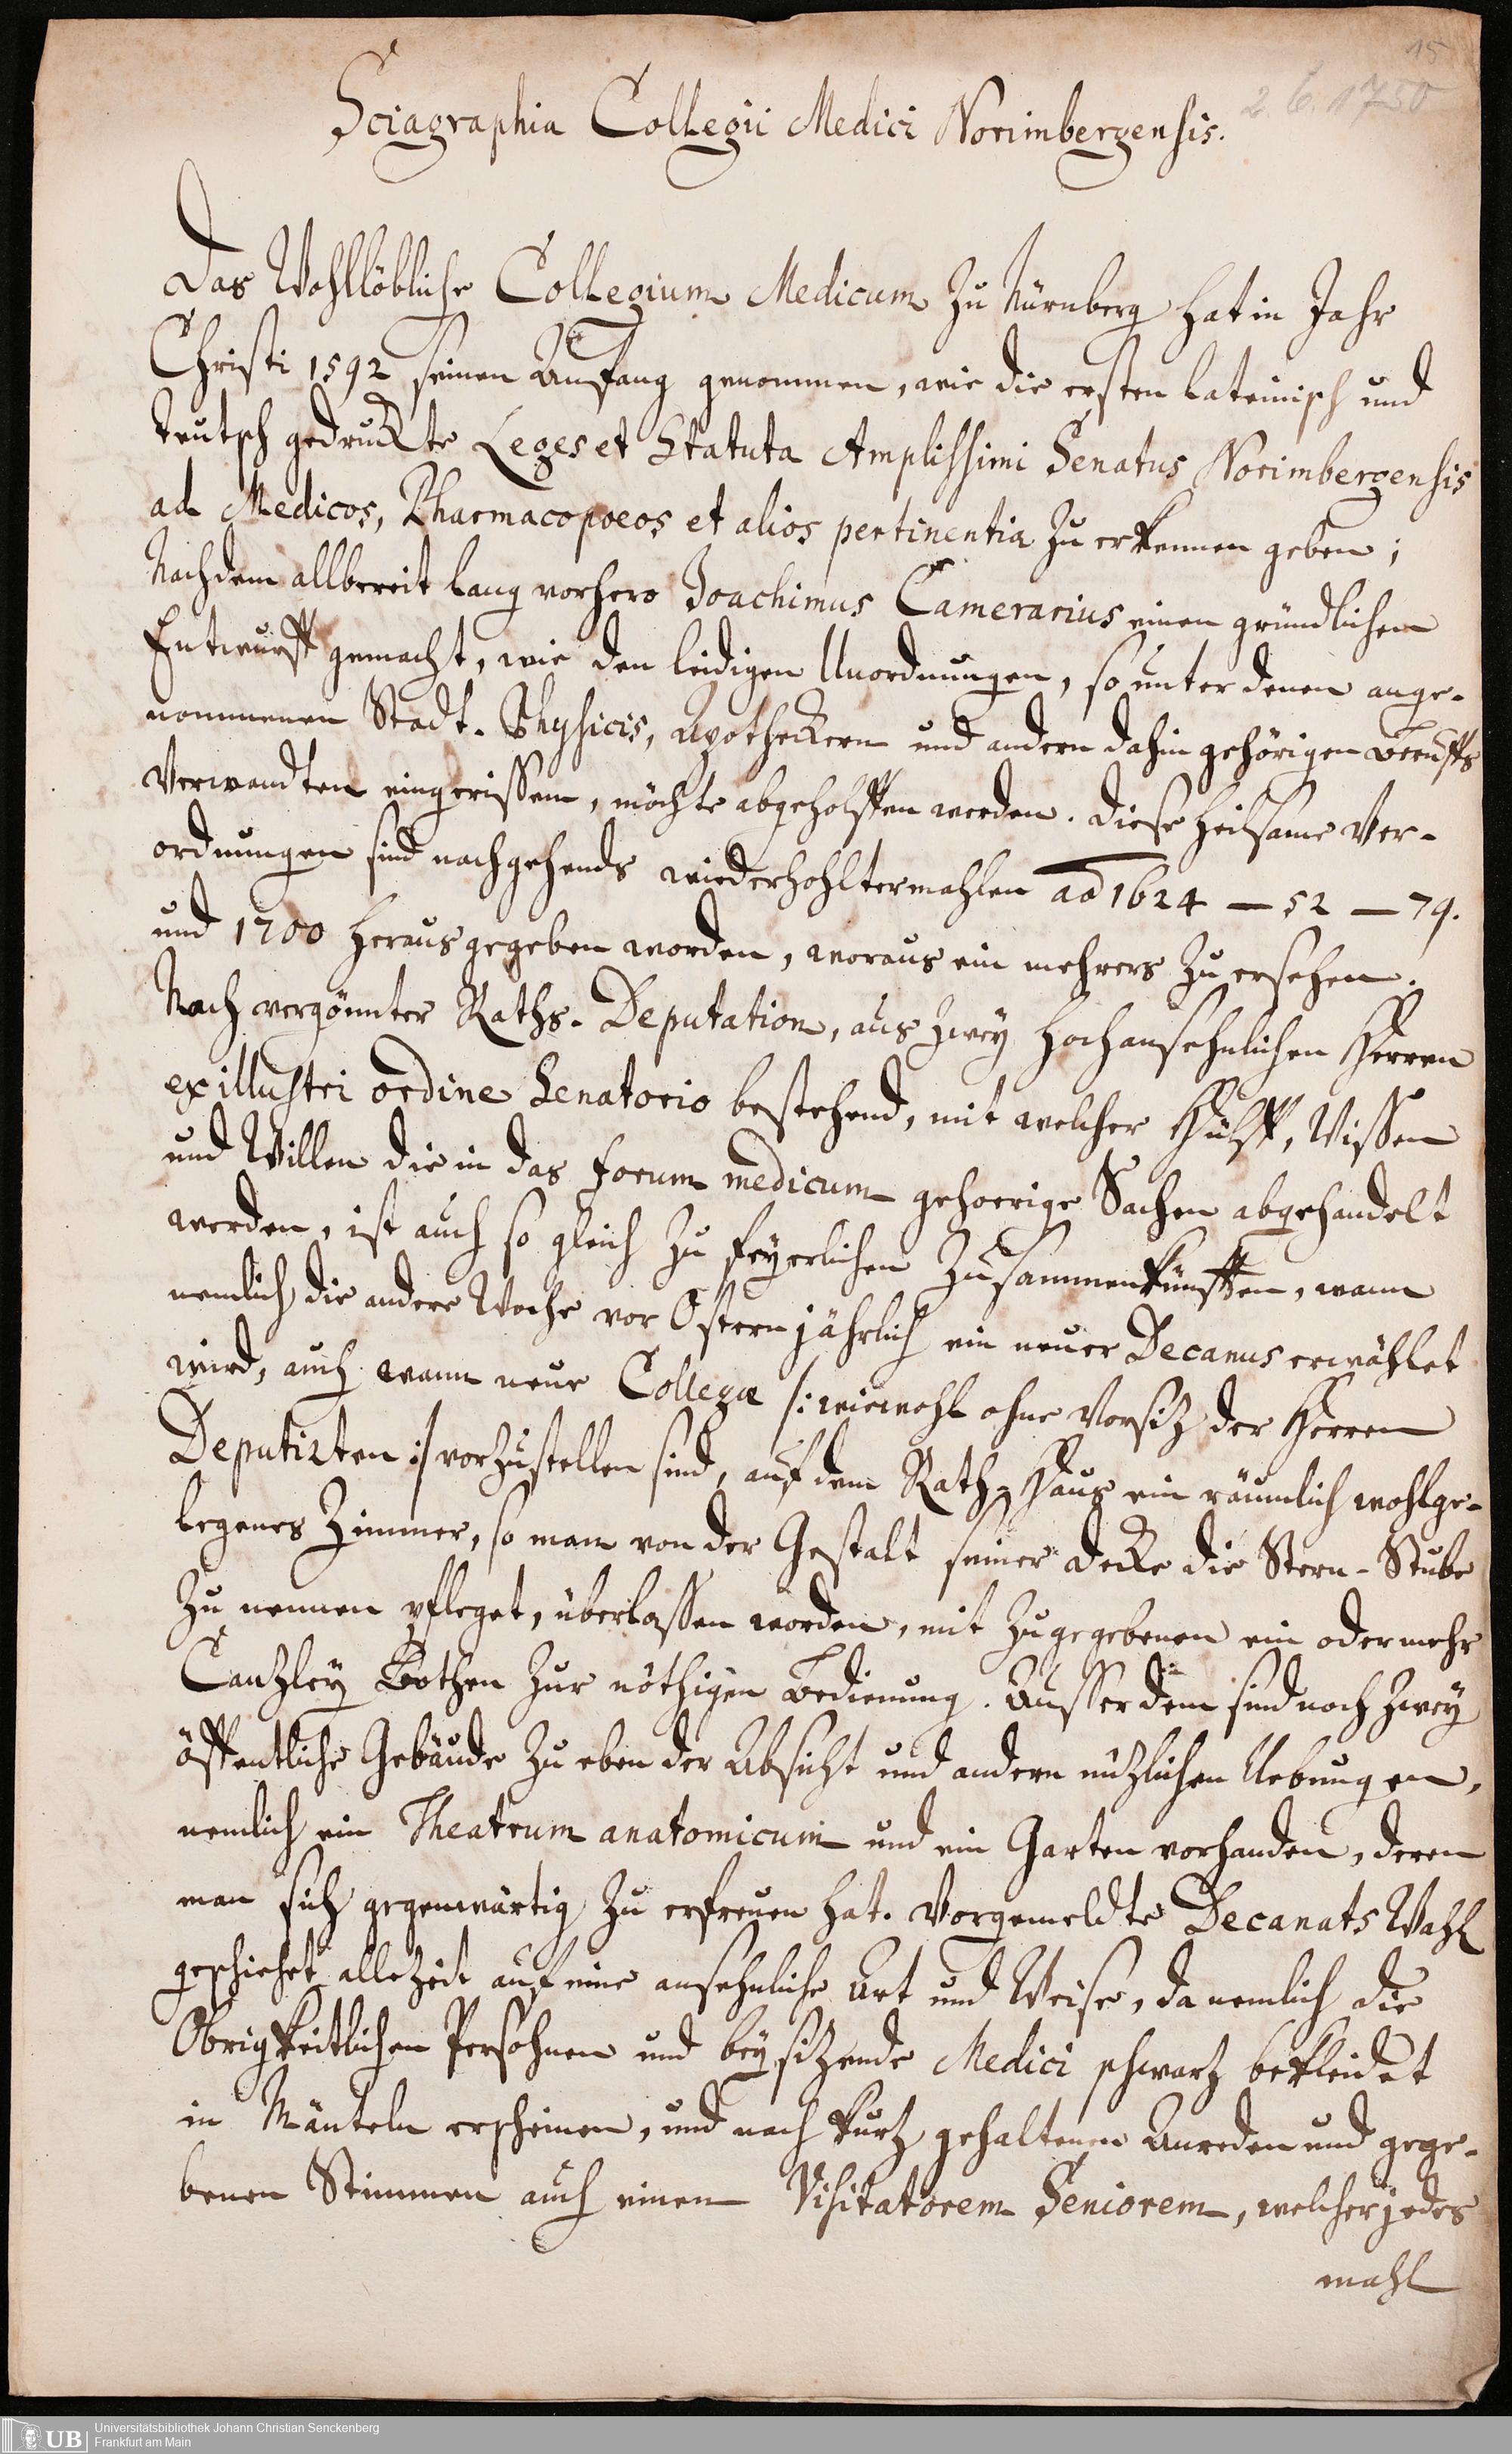 15
2. 6. 1750
Sciagraphia Collegii Medici Norimbergensis.
Das Wohllöbliche Collegium Medicum zu Nürnberg hat in Jahr
Christi 1592 seinen Anfang genommen, wie die ersten lateinisch und
teutsch gedruckte Leges et Statuta Amplissimi Senatus Norimbergensis
ad Medicos, Pharmacopoeos et alios pertinentia zu erkennen geben;
Nachdem allbereit lang vorhero Joachimus Camerarius einen gründlichen
Entwurff gemacht, wie den leidigen Unordnungen, so unter denen ange-
nommenen Stadt-Physicis, Apotheckern und andern dahin gehörigen Beruffs
Verwandten eingerissen, möchte abgeholffen werden. Diese heilsame Ver-
ordnungen sind nachgehends wiederhohltermahlen ao 1624 — 52 — 79.
und 1700 herausgegeben worden, woraus ein mehrers zu ersehen.
Nach vergönnter Raths-Deputation, aus zwey hochansehnlichen Herren
ex illustri ordine Senatorio bestehend, mit welcher Hülff, Wissen
und Willen die in das forum medicum gehoerige Sachen abgehandelt
werden, ist auch so gleich zu feyerlichen Zusammenkünfften, wann
nemlich die andere Woche vor Ostern jährlich ein neuer Decanus erwählet
wird, auch wann neue Collegæ /: wiewohl ohne Vorsitz der Herren
Deputirten :/ vorzustellen sind, auf dem Rath-Haus ein räumlich wohlge-
legenes Zimmer, so man von der Gestalt seiner Decke die Stern-Stube
zu nennen pfleget, überlassen worden, mit zugegebenen ein oder mehr
Canzley Bothen zur nöthigen Bedienung. Ausser dem sind noch zwey
öffentliche Gebäude zu eben der Absicht und andern nützlichen Uebungen,
nemlich ein Theatrum anatomicum und ein Garten vorhanden, deren
man sich gegenwärtig zu erfreuen hat. Vorgemeldte Decanats Wahl
geschiehet allezeit auf eine ansehnliche Art und Weise, da nemlich die
Obrigkeitlichen Persohnen und beysitzende Medici schwartz bekleidet
in Mänteln erscheinen, und nach kurtz gehaltenen Anreden und gege-
benen Stimmen auch einen Visitatorem Seniorem, welcher jedes
mahl
UB
Universitätsbibliothek Johann Christian Senckenberg
Frankfurt am Main